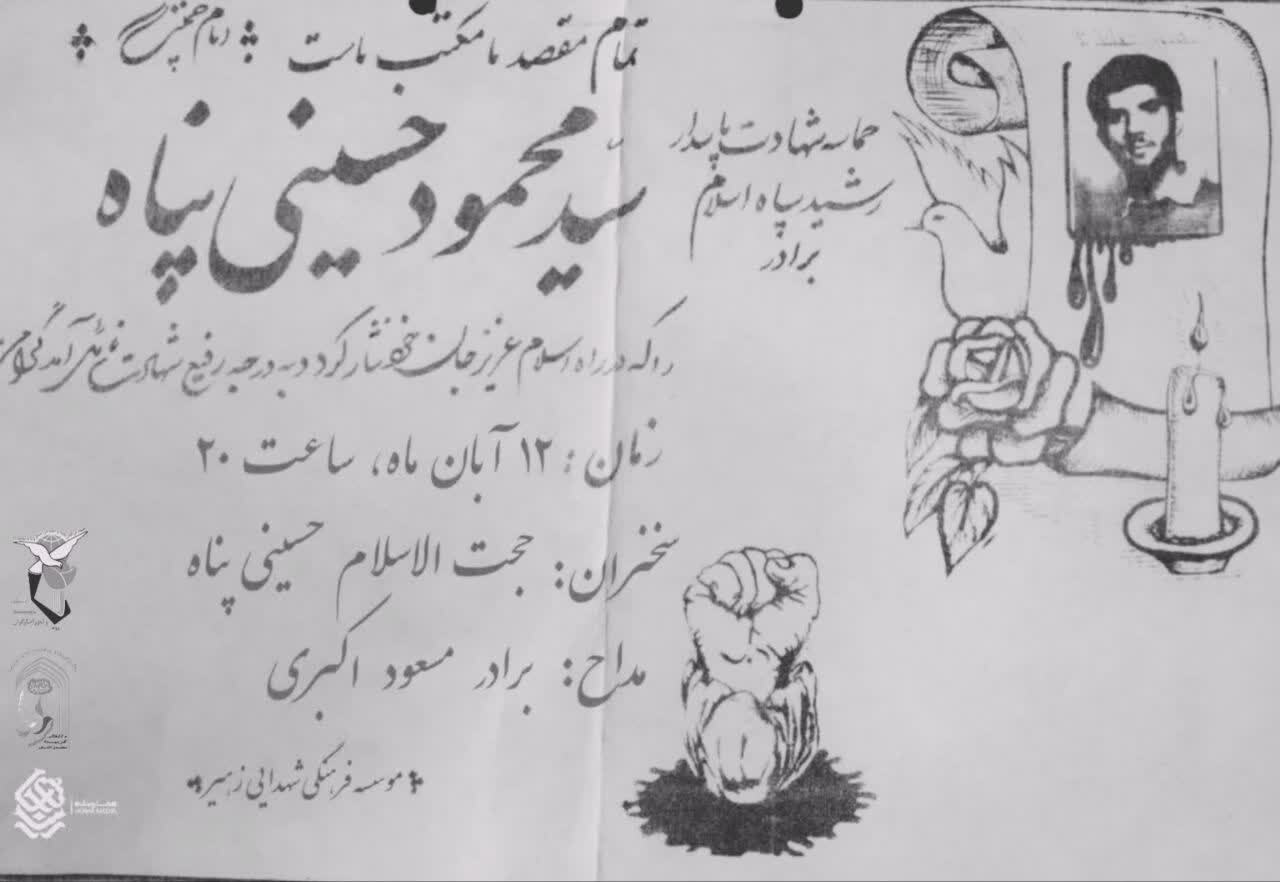 تمام مقصد ما مکتب ماست امام خمینی
حماسه شهادت پایدار
رشید سپاه اسلام
برادر
سید محمود حسینی پناه
را که در راه اسلام عزیز جان خود نثار کرد و به درجه رفیع شهادت نائل آمد گرامی
زمان: ۱۲ آبان ماه، ساعت ۲۰
سخنران: حجت الاسلام حسینی پناه
مداح: برادر مسعود اکبری
موسسه فرهنگی شهدایی زهیر